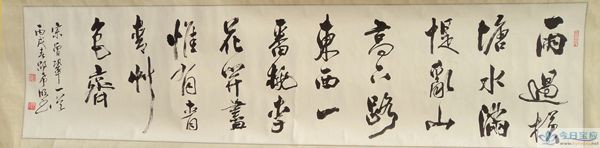 雨過橫
塘水滿
堤亂山
高下路
東西一
番桃李
花開盡
惟有青
青艸
色齊
宋曾鞏一首
丙戌春
今日宝应